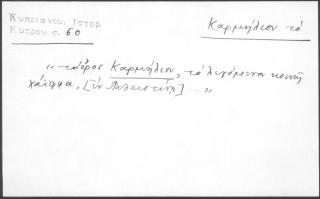 Κυπριανου, Ιστορ.
Κυπρου, σ. 60
Καρμήλιον τό
« τό ὄρος Καρμήλιον, τό λεγόμενον κοινῶς
Χάϊφφα, [ἐν Παλαιστίνῃ] ... »